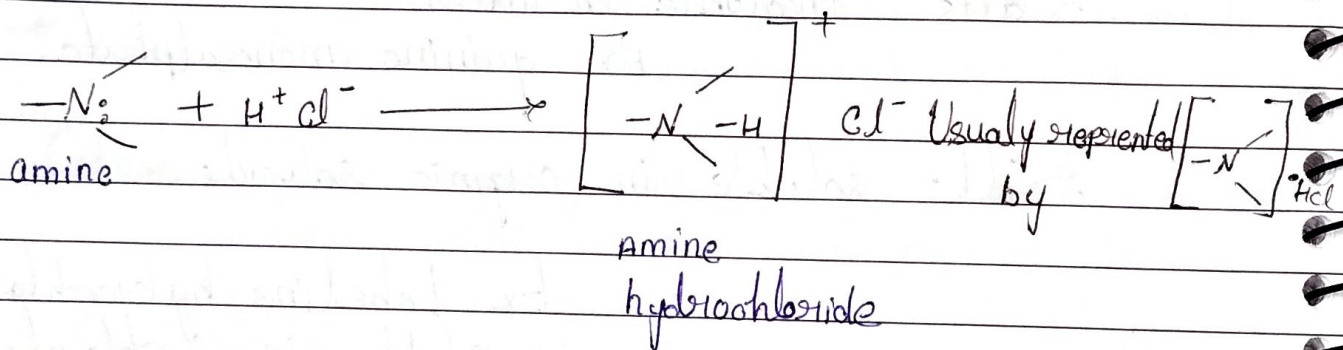 —N: + H⁺ Cl⁻ ⟶ [—N—H]⁺ Cl⁻ Usualy reprented by [—N]·HCl
amine
Amine
hydroohloride